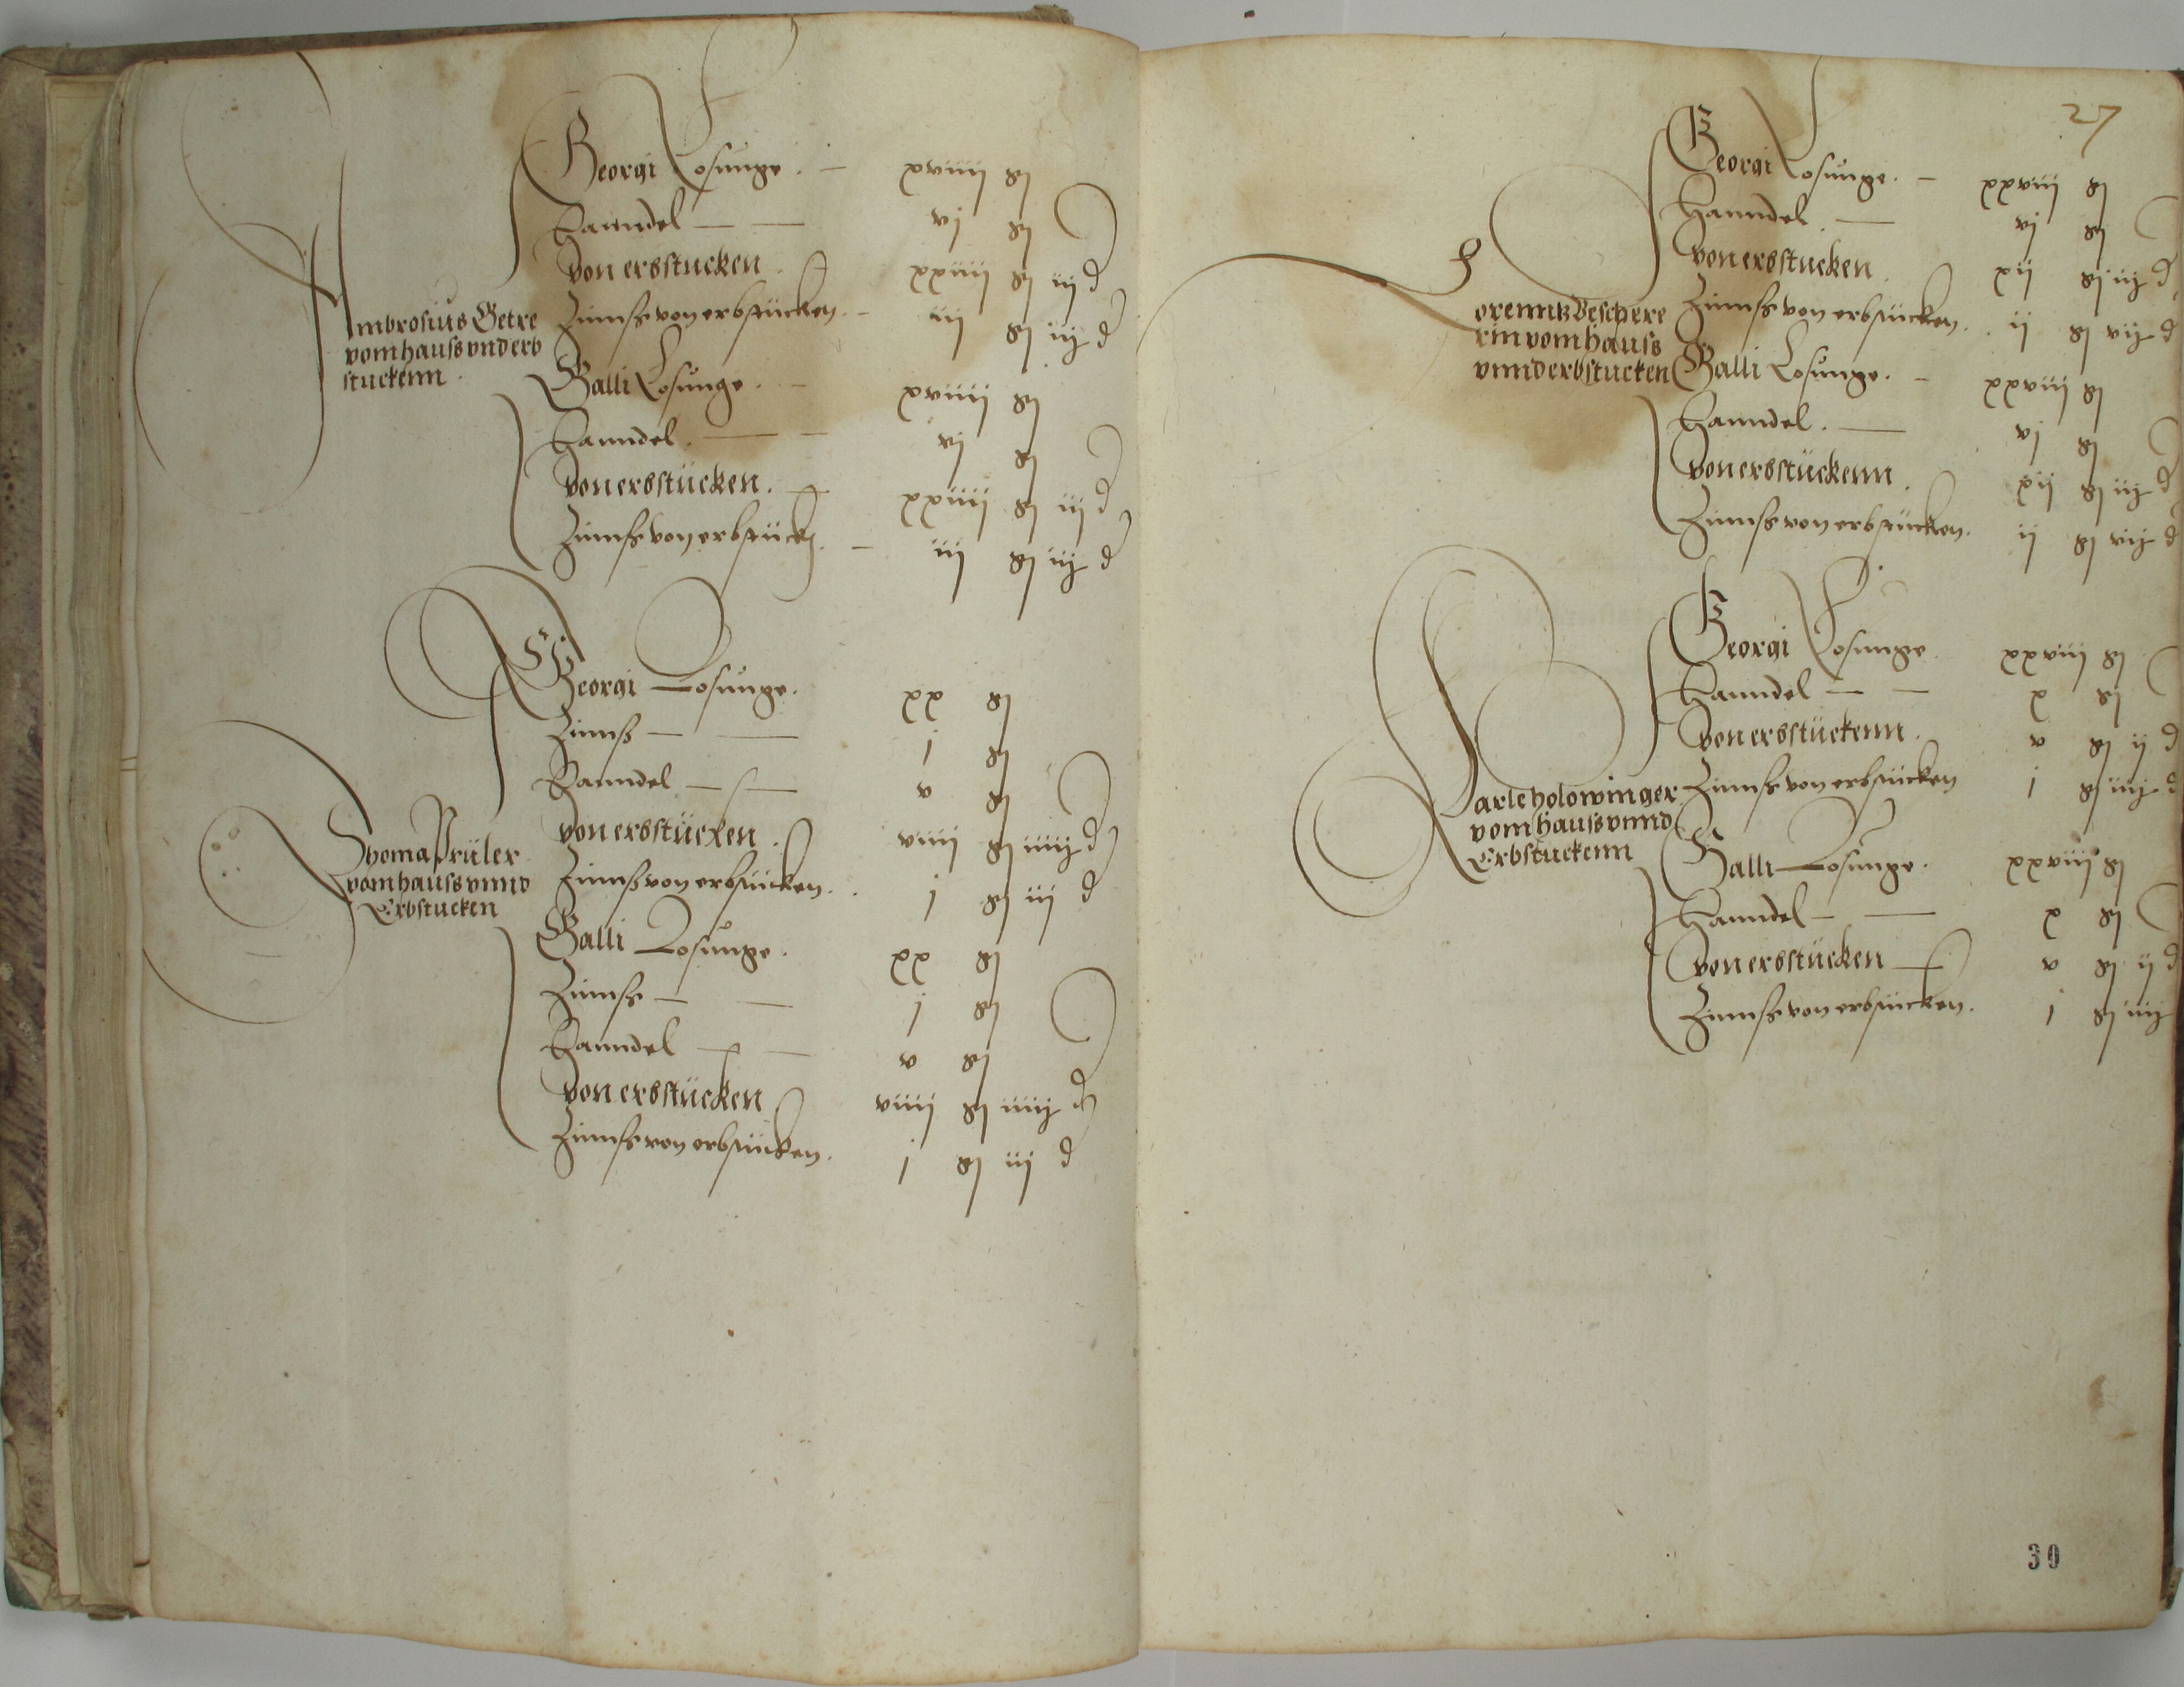 Ambrosius Getre
vom hauss vnd erb
stuckenn.
Georgi Losunge. xviiij gl
Hanndel vj gl
von erbstucken. xxiiij gl iij d
Zinnss von erbstucken. iij gl iij d
Galli Losunge. xviiij gl
Hanndel. vj gl
von erbstücken. xxiiij gl iij d
Zinnss von erbstück iij gl iij d
Thoma Prüler
vom hauss vnnd
Erbstucken
Georgi Losunge. xx gl
Zinnss j gl
Hanndel v gl
von erbstücken. viiij gl iiiij d
Zinnss von erbstücken. j gl iij d
Galli Losunge. xx gl
Zinnss j gl
Hanndel v gl
von erbstücken viiij gl iiiij d
Zinnss von erbstücken. j gl iij d
27
Lorenntz Beschere
rin vom hauss
vnnd erbstucken
Georgi Losunge. xxviij gl
Hanndel. vj gl
von erbstucken. xij gl iij d
Zinnss von erbstücken. ij gl vij d
Galli Losunge. xxviij gl
Hanndel. vj gl
von erbstückenn. xij gl iij d
Zinnss von erbstücken. ij gl vij d
Bartholowinger
vom hauss vnnd
Erbstuckenn
Georgi Losunge xxviij gl
Hanndel x gl
von erbstückenn. v gl ij d
Zinnss von erbstücken j gl iiij d
Galli Losunge. xxviij gl
Hanndel x gl
von erbstücken v gl ij d
Zinnss von erbstücken. j gl iiij
30